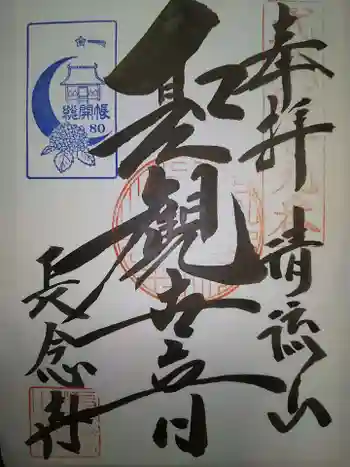 奉拝
清流山
聖観世音
長念寺
一
総開帳
80